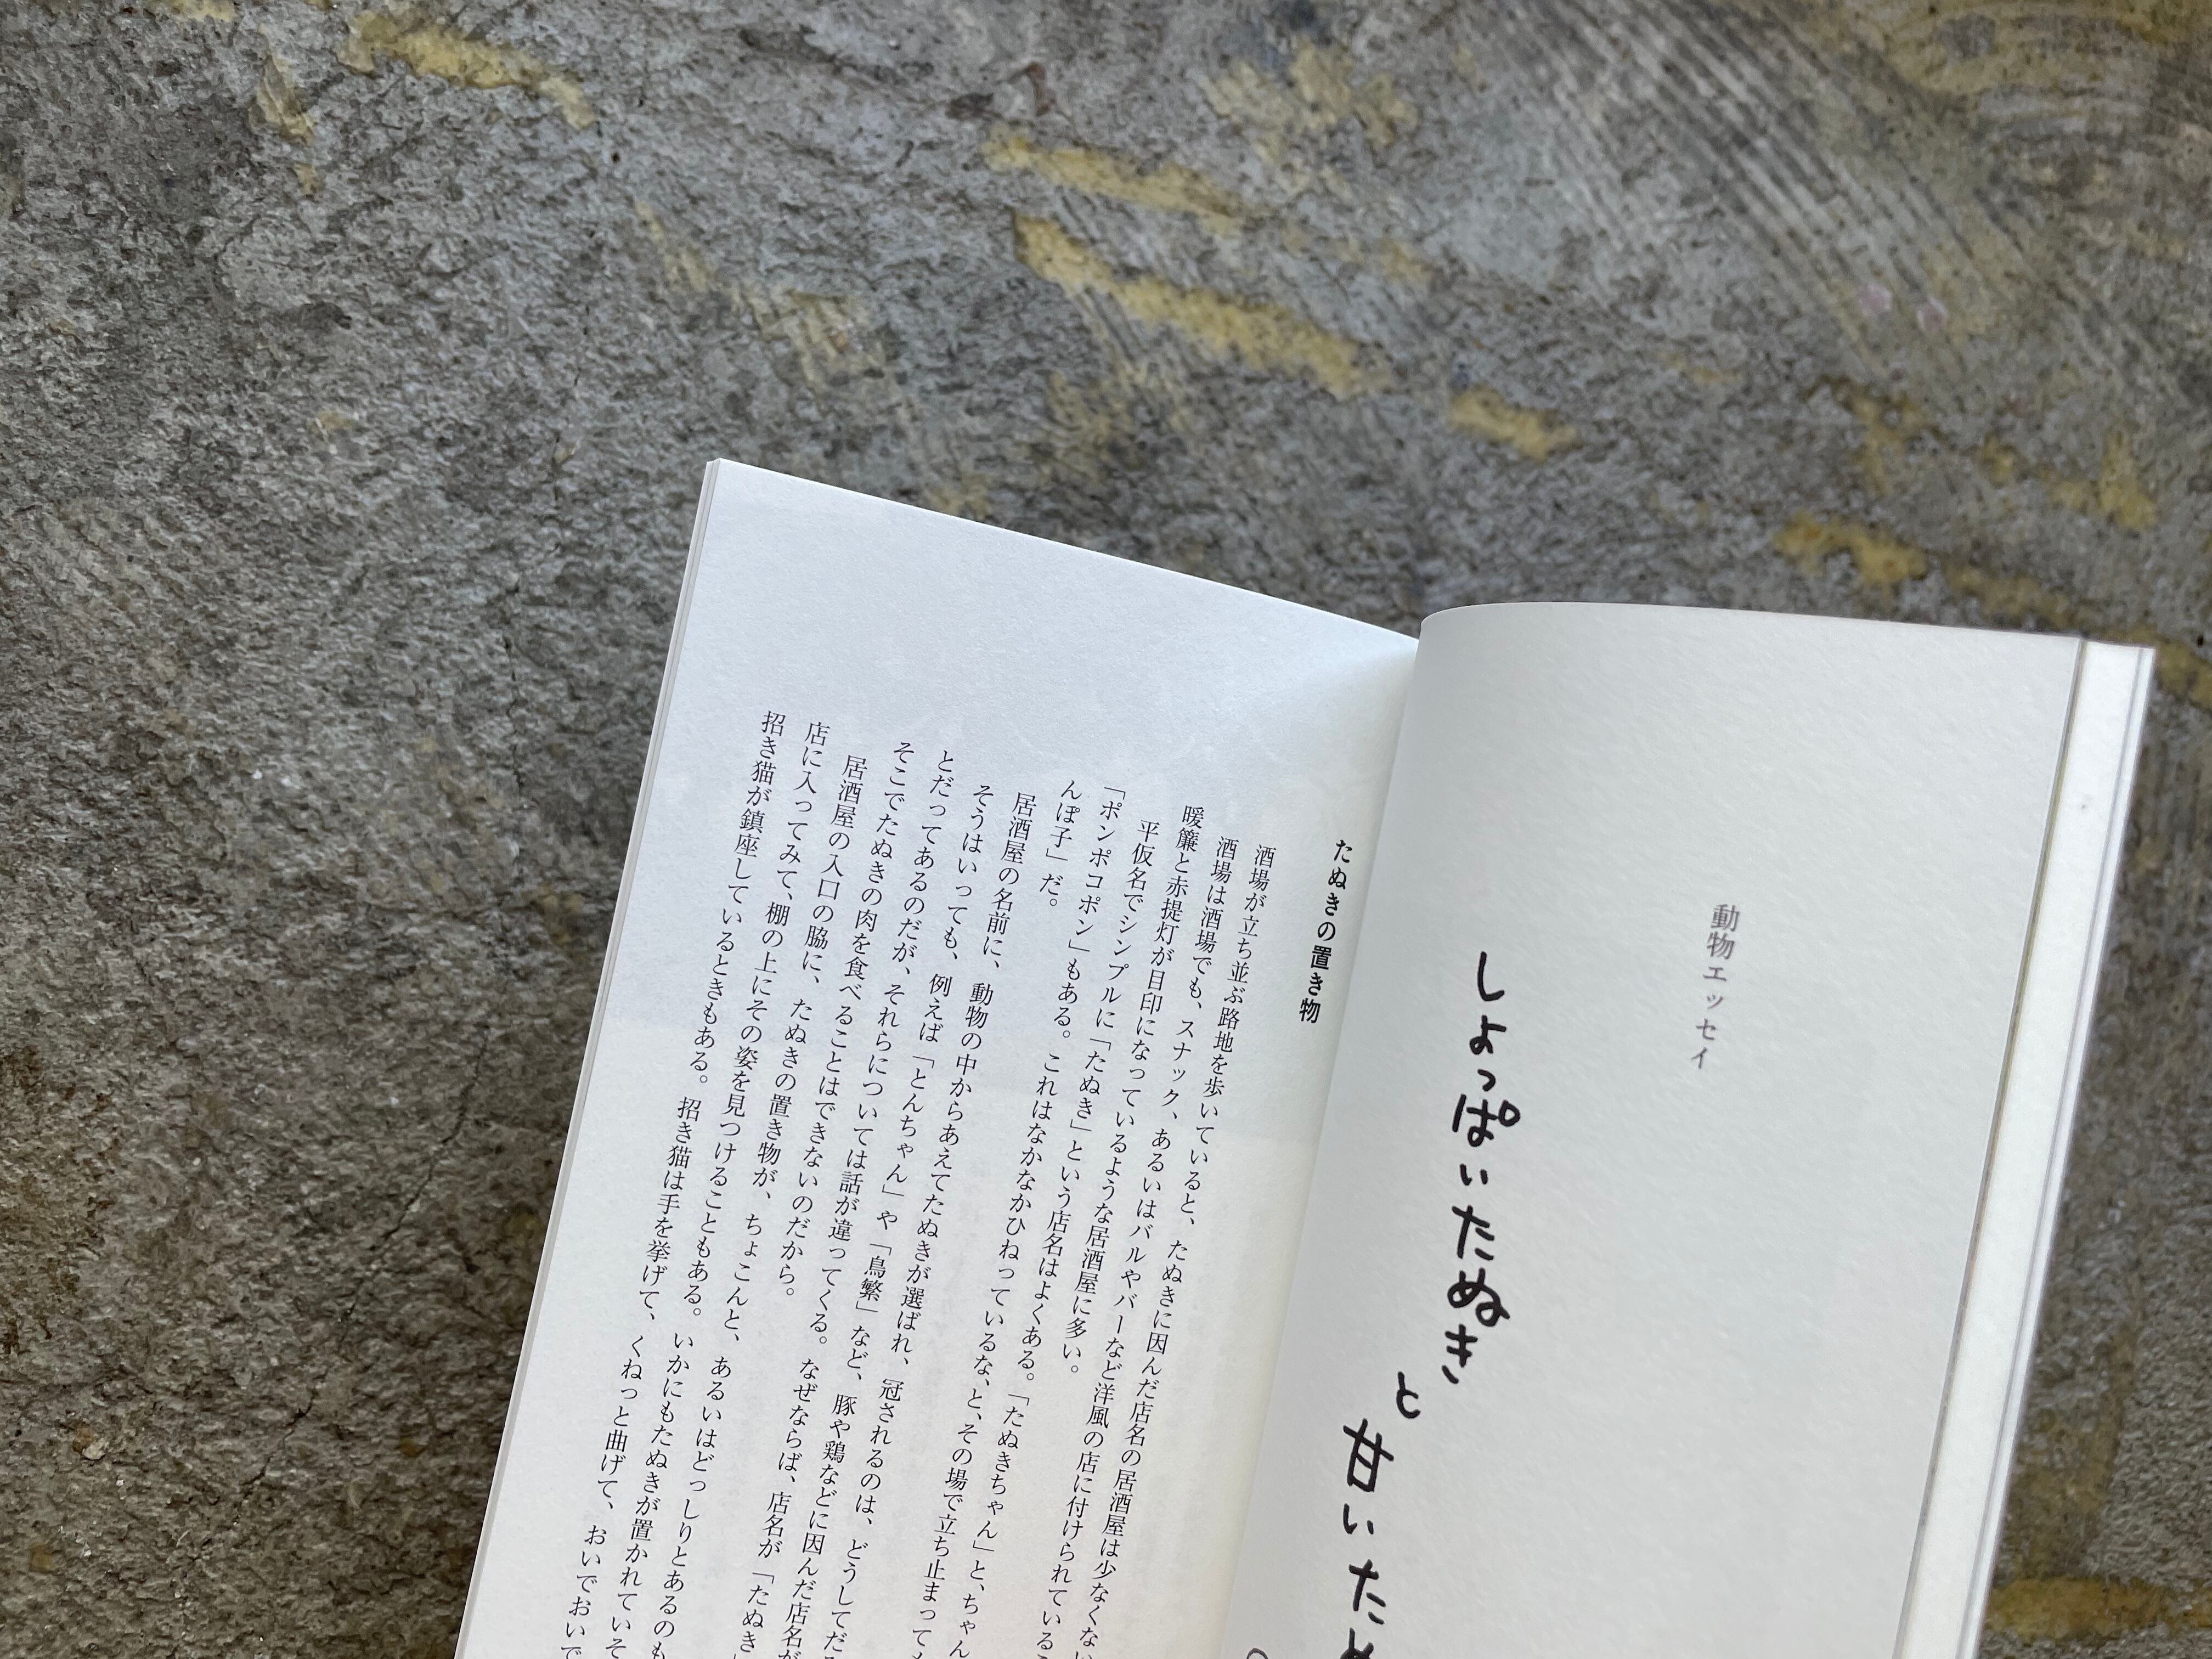 動物エッセイ
しょっぱいたぬき
と
甘いたぬ
たぬきの置き物
酒場が立ち並ぶ路地を歩いていると、たぬきに因んだ店名の居酒屋は少なくない
酒場は酒場でも、スナック、あるいはバルやバーなど洋風の店に付けられているこ
暖簾と赤提灯が目印になっているような居酒屋に多い。
平仮名でシンプルに「たぬき」という店名はよくある。「たぬきちゃん」と、ちゃん
「ポンポコポン」もある。これはなかなかひねっているな、と、その場で立ち止まっても
んぽ子」だ。
居酒屋の名前に、動物の中からあえてたぬきが選ばれ、冠されるのは、どうしてだろ
そうはいっても、例えば「とんちゃん」や「鳥繁」など、豚や鶏などに因んだ店名が
とだってあるのだが、それらについては話が違ってくる。なぜならば、店名が「たぬき」
そこでたぬきの肉を食べることはできないのだから。
居酒屋の入口の脇に、たぬきの置き物が、ちょこんと、あるいはどっしりとあるのも
店に入ってみて、棚の上にその姿を見つけることもある。いかにもたぬきが置かれていそ
招き猫が鎮座しているときもある。招き猫は手を挙げて、くねっと曲げて、おいでおいで